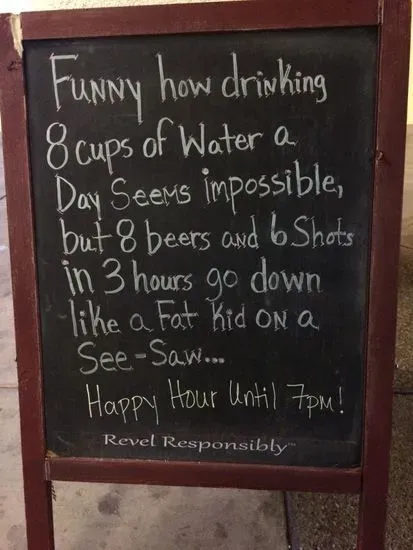 Funny how drinking
8 cups of Water a
Day Seems impossible,
but 8 beers and 6 Shots
in 3 hours go down
like a Fat Kid on a
See-Saw...
Happy Hour Until 7pm!
Revel Responsibly™